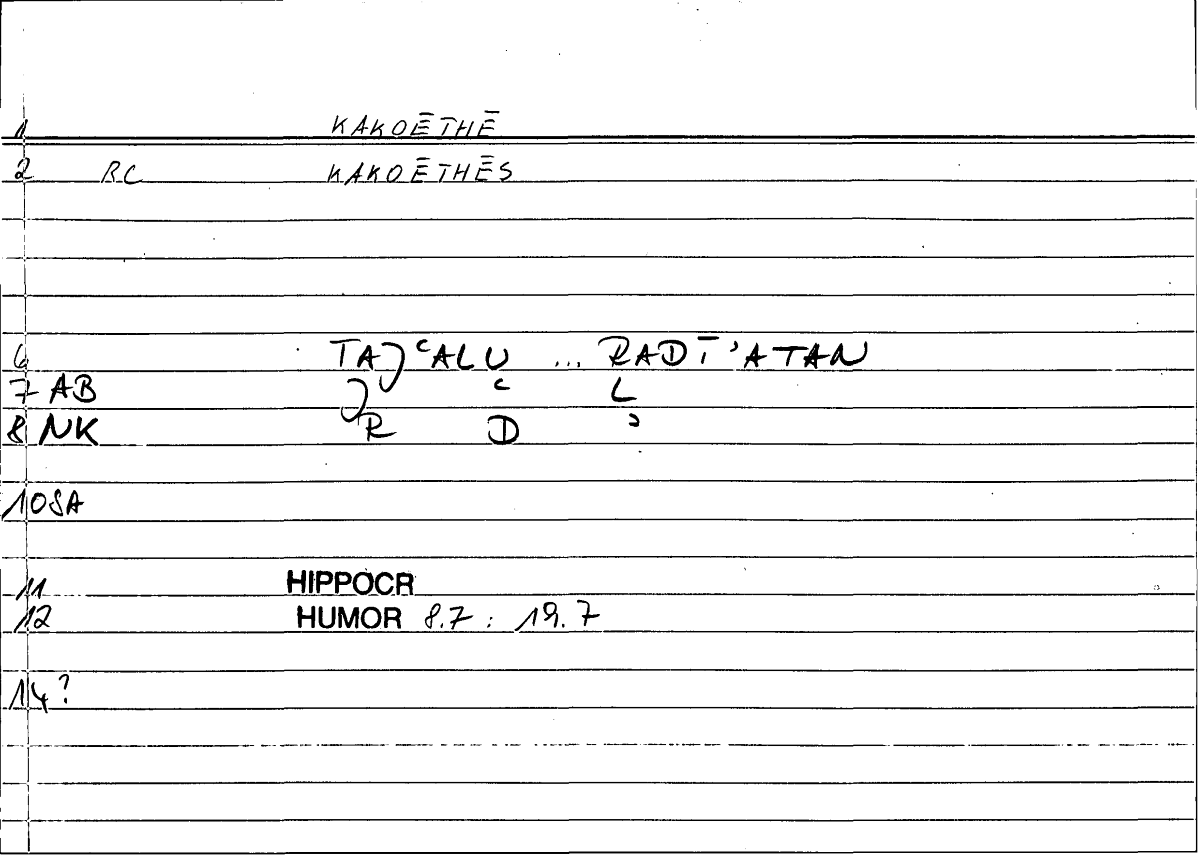 1 KAKOĒTHĒ
2 RC KAKOĒTHĒS
6 TAJʿALU ... RADĪʾATAN
7 AB J ʿ L
8 NK R D ʾ
10 SA
11 HIPPOCR
12 HUMOR 8.7 : 19.7
14?